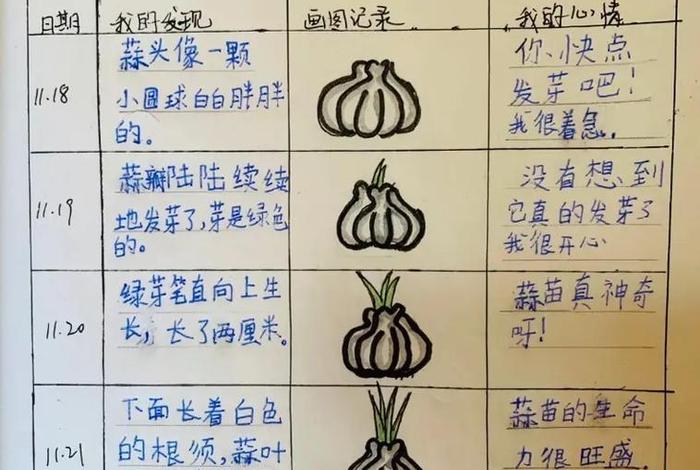 日期 我的发现 画图记录 我的心情
11.18
蒜头像一颗
小圆球白白胖胖
的。
你、快点
发芽吧！
我很着急。
11.19
蒜瓣陆陆续续
地发芽了，芽是绿色
的。
没有想到
它真的发芽了
我很开心
11.20
绿芽笔直向上生
长，长了两厘米。
蒜苗真神奇
呀！
11.21
下面长着白色
的根须，蒜叶
蒜苗的生命
力很旺盛